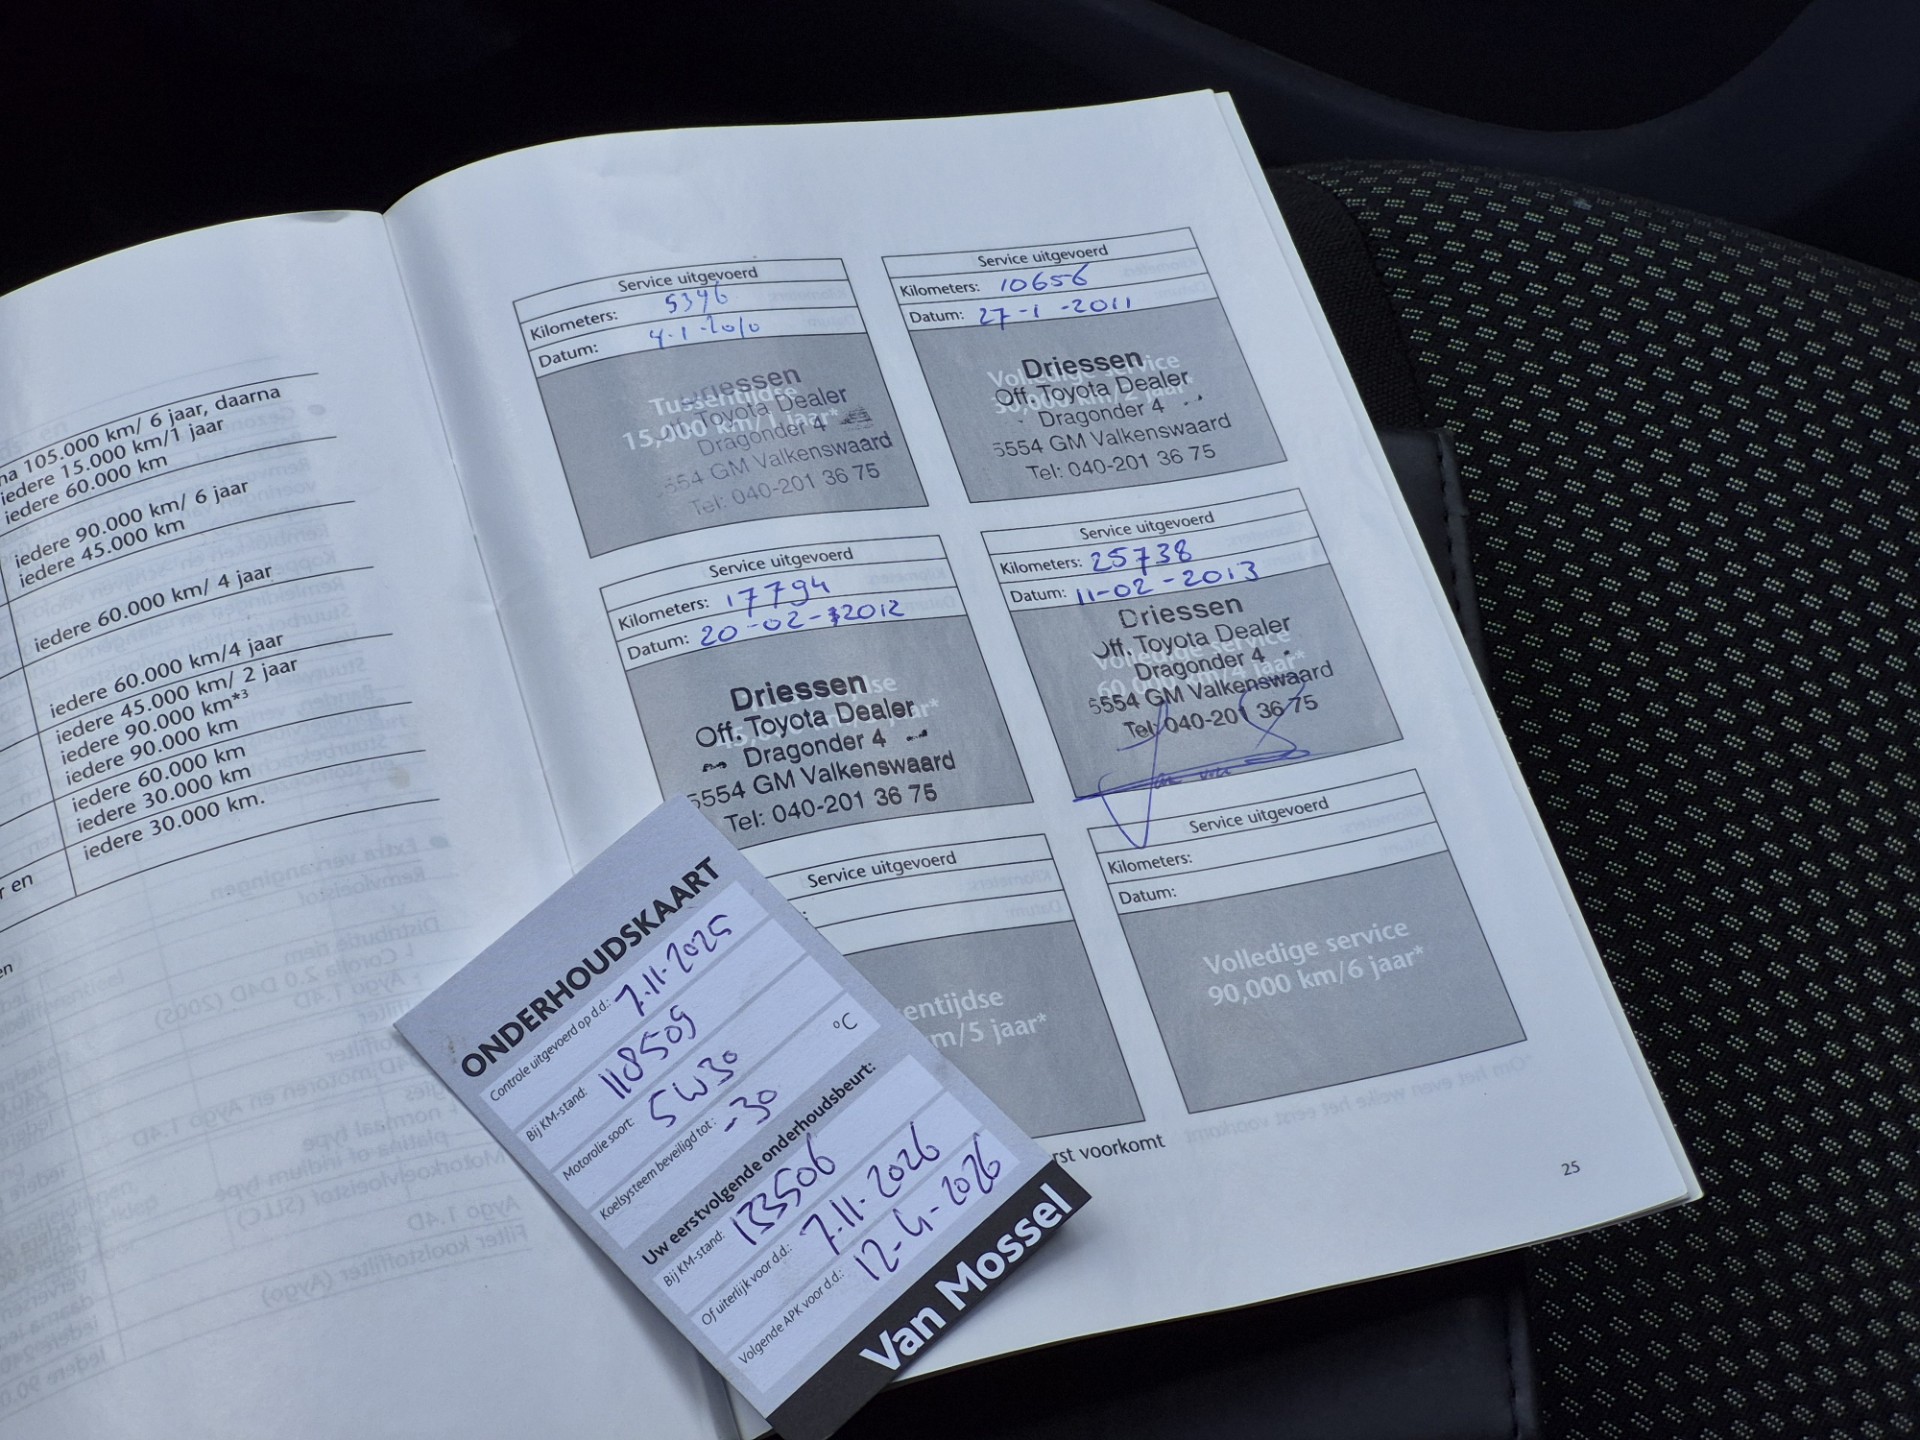 na 105.000 km/ 6 jaar, daarna
iedere 15.000 km/1 jaar
iedere 60.000 km
iedere 90.000 km/ 6 jaar
iedere 45.000 km
iedere 60.000 km/ 4 jaar
iedere 60.000 km/4 jaar
iedere 45.000 km/ 2 jaar
iedere 90.000 km*3
iedere 90.000 km
iedere 60.000 km
iedere 30.000 km
iedere 30.000 km.
r en
en
Service uitgevoerd
Kilometers: 5396
Datum: 4-1-2010
Tussentijdse
15,000 km/1 jaar*
Driessen
Toyota Dealer
Dragonder 4
5554 GM Valkenswaard
Tel: 040-201 36 75
Service uitgevoerd
Kilometers: 10656
Datum: 27-1-2011
Volledige service
30,000 km/2 jaar*
Driessen
Off. Toyota Dealer
Dragonder 4
5554 GM Valkenswaard
Tel: 040-201 36 75
Service uitgevoerd
Kilometers: 17794
Datum: 20-02-2012
Driessen
Off. Toyota Dealer
Dragonder 4
5554 GM Valkenswaard
Tel: 040-201 36 75
Service uitgevoerd
Kilometers: 25738
Datum: 11-02-2013
Volledige service
60,000 km/4 jaar*
Driessen
Off. Toyota Dealer
Dragonder 4
5554 GM Valkenswaard
Tel: 040-201 36 75
Service uitgevoerd
entijdse
m/5 jaar*
Service uitgevoerd
Kilometers:
Datum:
Volledige service
90,000 km/6 jaar*
rst voorkomt
25
ONDERHOUDSKAART
Controle uitgevoerd op d.d.: 7.11.2025
Bij KM-stand: 118509
Motorolie soort: 5W30
Koelsysteem beveiligd tot: -30 °C
Uw eerstvolgende onderhoudsbeurt:
Bij KM-stand: 133506
Of uiterlijk voor d.d.: 7.11.2026
Volgende APK voor d.d.: 12-4-2026
Van Mossel